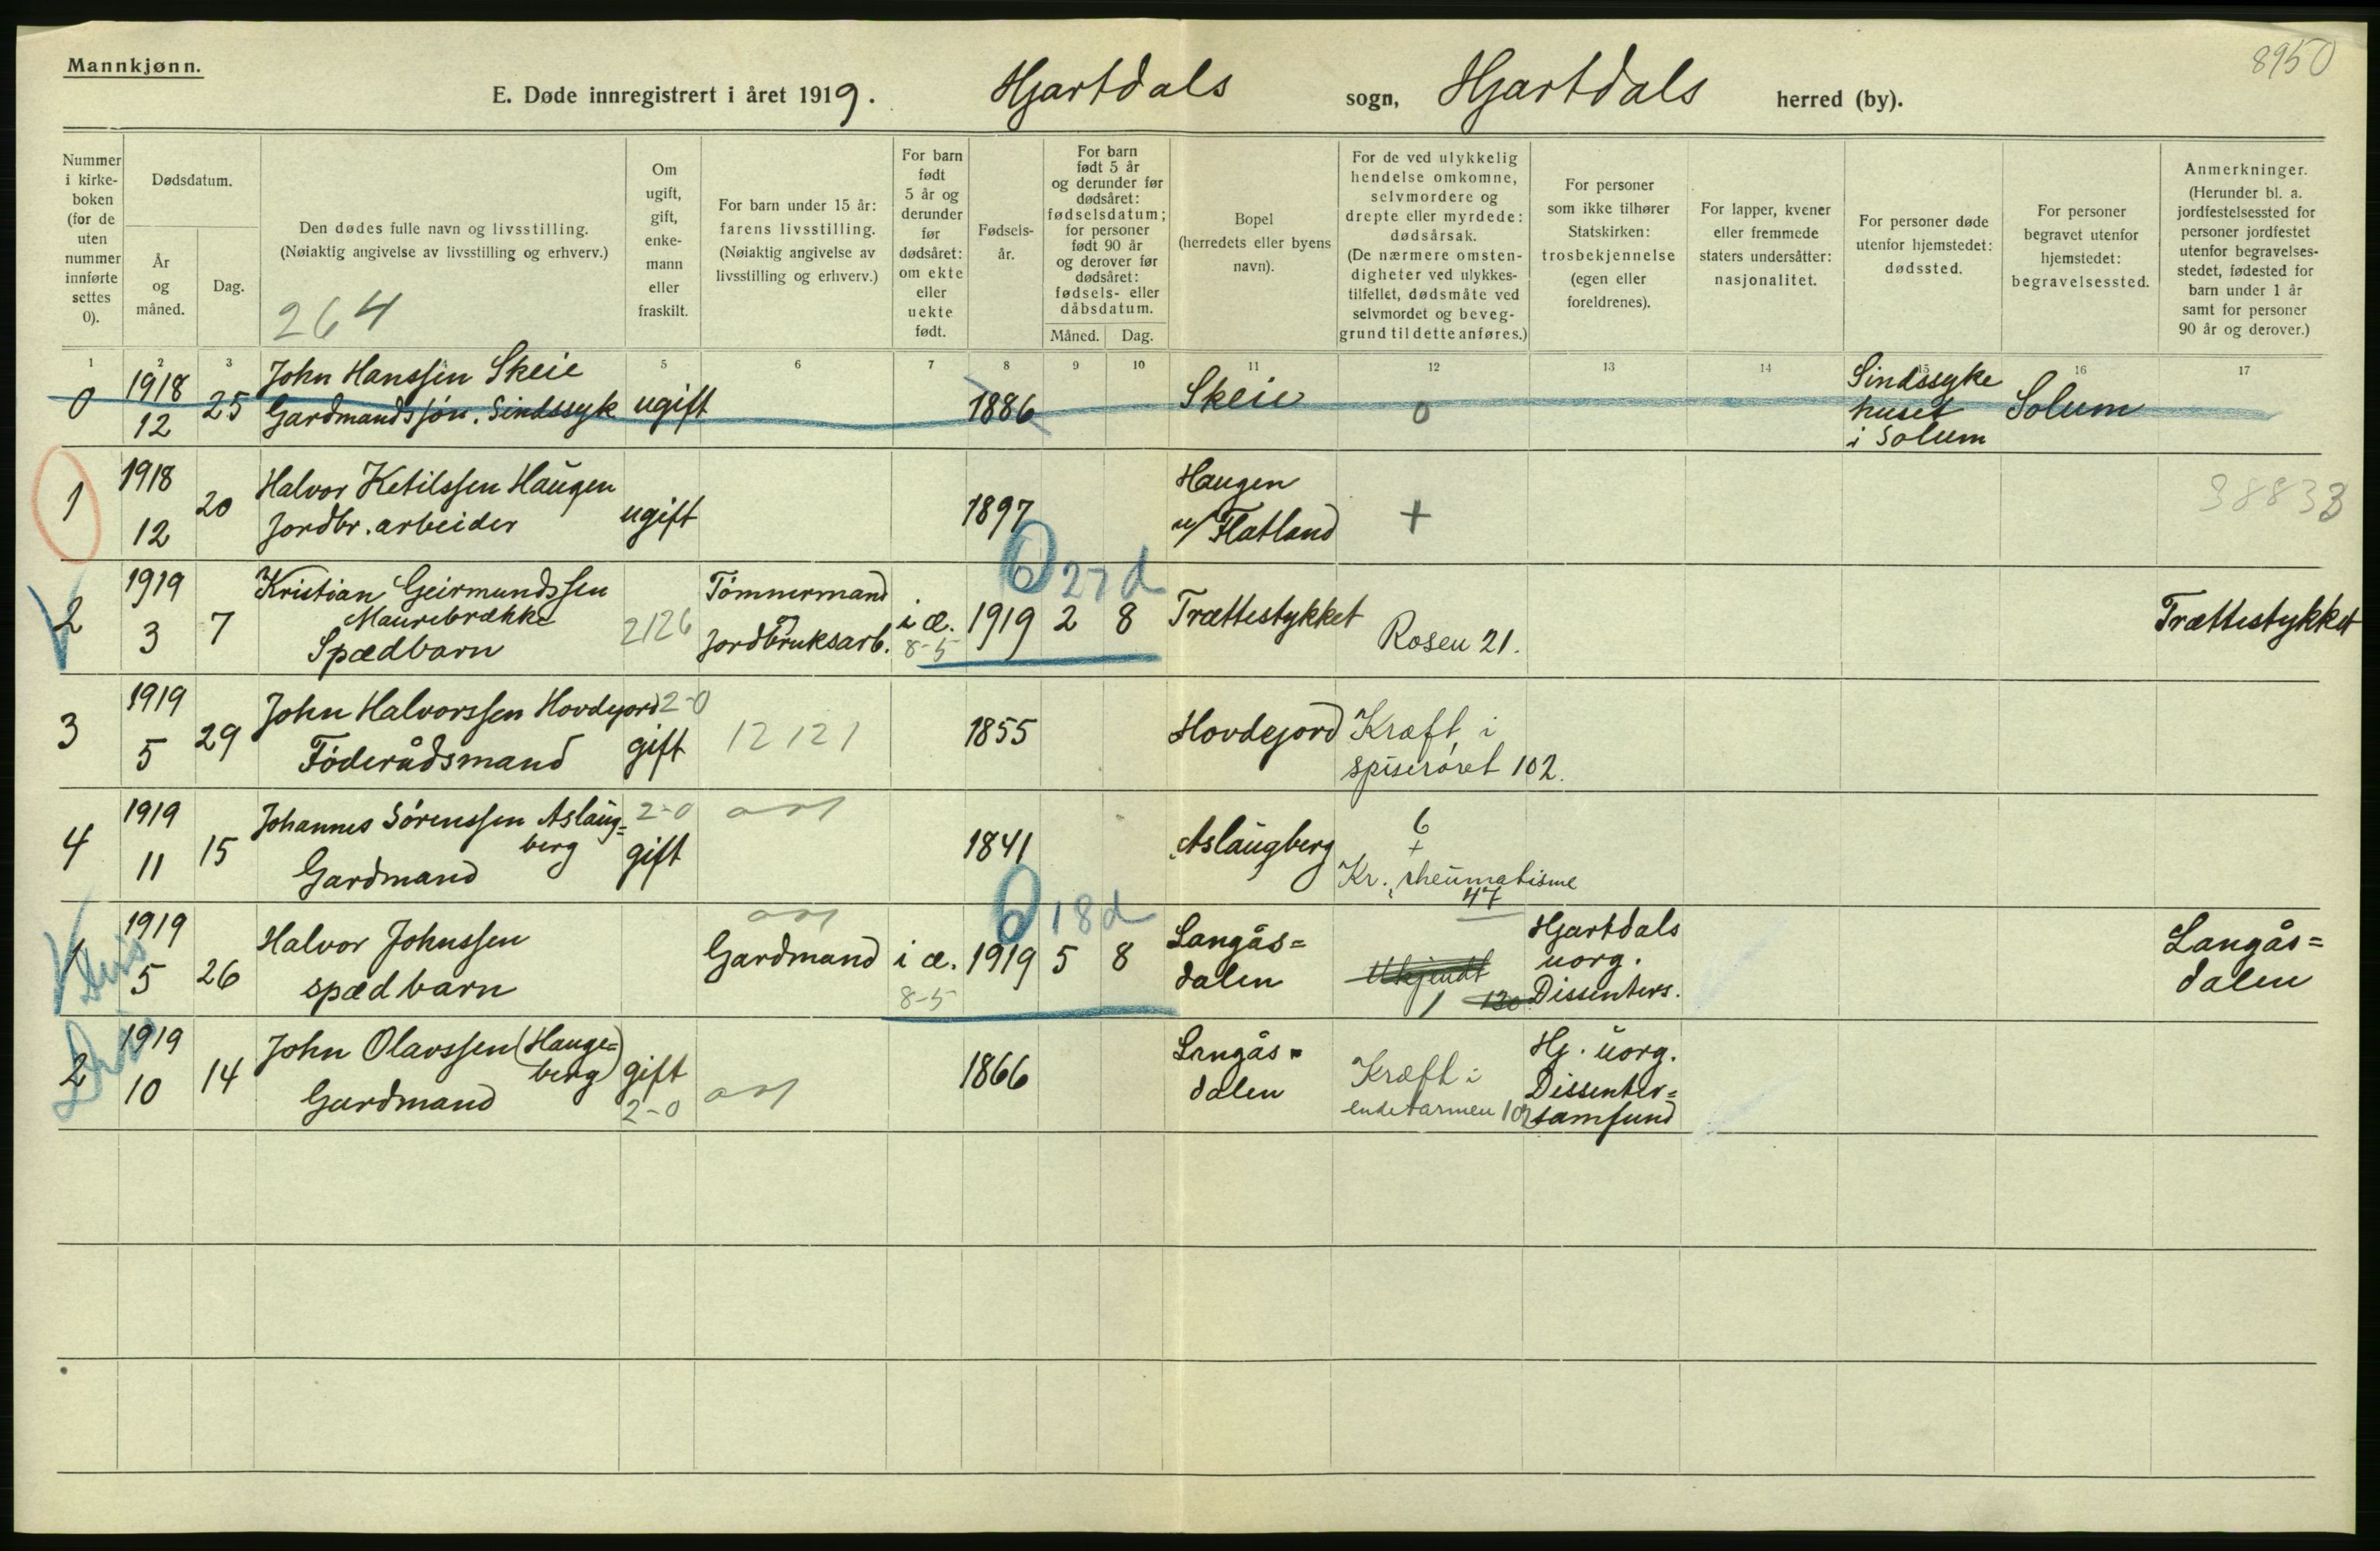 Mannkjønn.
8950
E. Døde innregistrert i året 1919. Hjartdals sogn, Hjartdals herred (by).
Nummer i kirke-boken (for de uten nummer innførte settes 0).
Dødsdatum.
År og måned.
Dag.
Den dødes fulle navn og livsstilling.
(Nøiaktig angivelse av livsstilling og erhverv.)
264
Om ugift, gift, enke-mann eller fraskilt.
For barn under 15 år: farens livsstilling.
(Nøiaktig angivelse av livsstilling og erhverv.)
For barn født 5 år og derunder før dødsåret: om ekte eller uekte født.
Fødsels-år.
For barn født 5 år og derunder før dødsåret: fødselsdatum; for personer født 90 år og derover før dødsåret: fødsels- eller dåbsdatum.
Måned. Dag.
Bopel (herredets eller byens navn).
For de ved ulykkelig hendelse omkomne, selvmordere og drepte eller myrdede: dødsårsak.
(De nærmere omsten-digheter ved ulykkes-tilfellet, dødsmåte ved selvmordet og beveg-grund til dette anføres.)
For personer som ikke tilhører Statskirken: trosbekjennelse (egen eller foreldrenes).
For lapper, kvener eller fremmede staters undersåtter: nasjonalitet.
For personer døde utenfor hjemstedet: dødssted.
For personer begravet utenfor hjemstedet: begravelsessted.
Anmerkninger.
(Herunder bl. a. jordfestelsessted for personer jordfestet utenfor begravelses-stedet, fødested for barn under 1 år samt for personer 90 år og derover.)
1 2 3 5 6 7 8 9 10 11 12 13 14 15 16 17
0 1918 12 25 John Hanssen Skeie
Gardmandssøn. Sindssyk ugift 1886 Skeie 0 Sindssyke
huset
i Solum Solum
1 1918 12 20 Halvor Ketilssen Haugen
Jordbr. arbeider ugift 1897 Haugen
u/ Flatland + 38833
2 1919 3 7 Kristian Geirmundssen
Maurebrække
Spædbarn 2126 Tømmermand
og
Jordbruksarb. i æ. 8-5 1919 2 8 6 27 d Trættestykket Rosen 21. Trættestykket
3 1919 5 29 John Halvorssen Hovdejord 2-0
Føderådsmand gift 12 121 1855 Hovdejord Kræft i
spiserøret 102.
4 1919 11 15 Johannes Sørenssen Aslaug=
berg
Gardmand 2-0 gift 1841 Aslaugberg 6
+
Kr. rheumatisme
47
1 Diss 1919 5 26 Halvor Johnssen
spædbarn Gardmand i æ. 8-5 1919 5 8 6 18 d Langås=
dalen Ukjendt
1 130 Hjartdals
uorg.
Dissenters. Langås=
dalen
2 Diss 1919 10 14 John Olavssen (Hauge=
berg)
Gardmand gift 2-0 1866 Langås=
dalen Kræft i
endetarmen 102 Hj. uorg.
Dissenter=
samfund